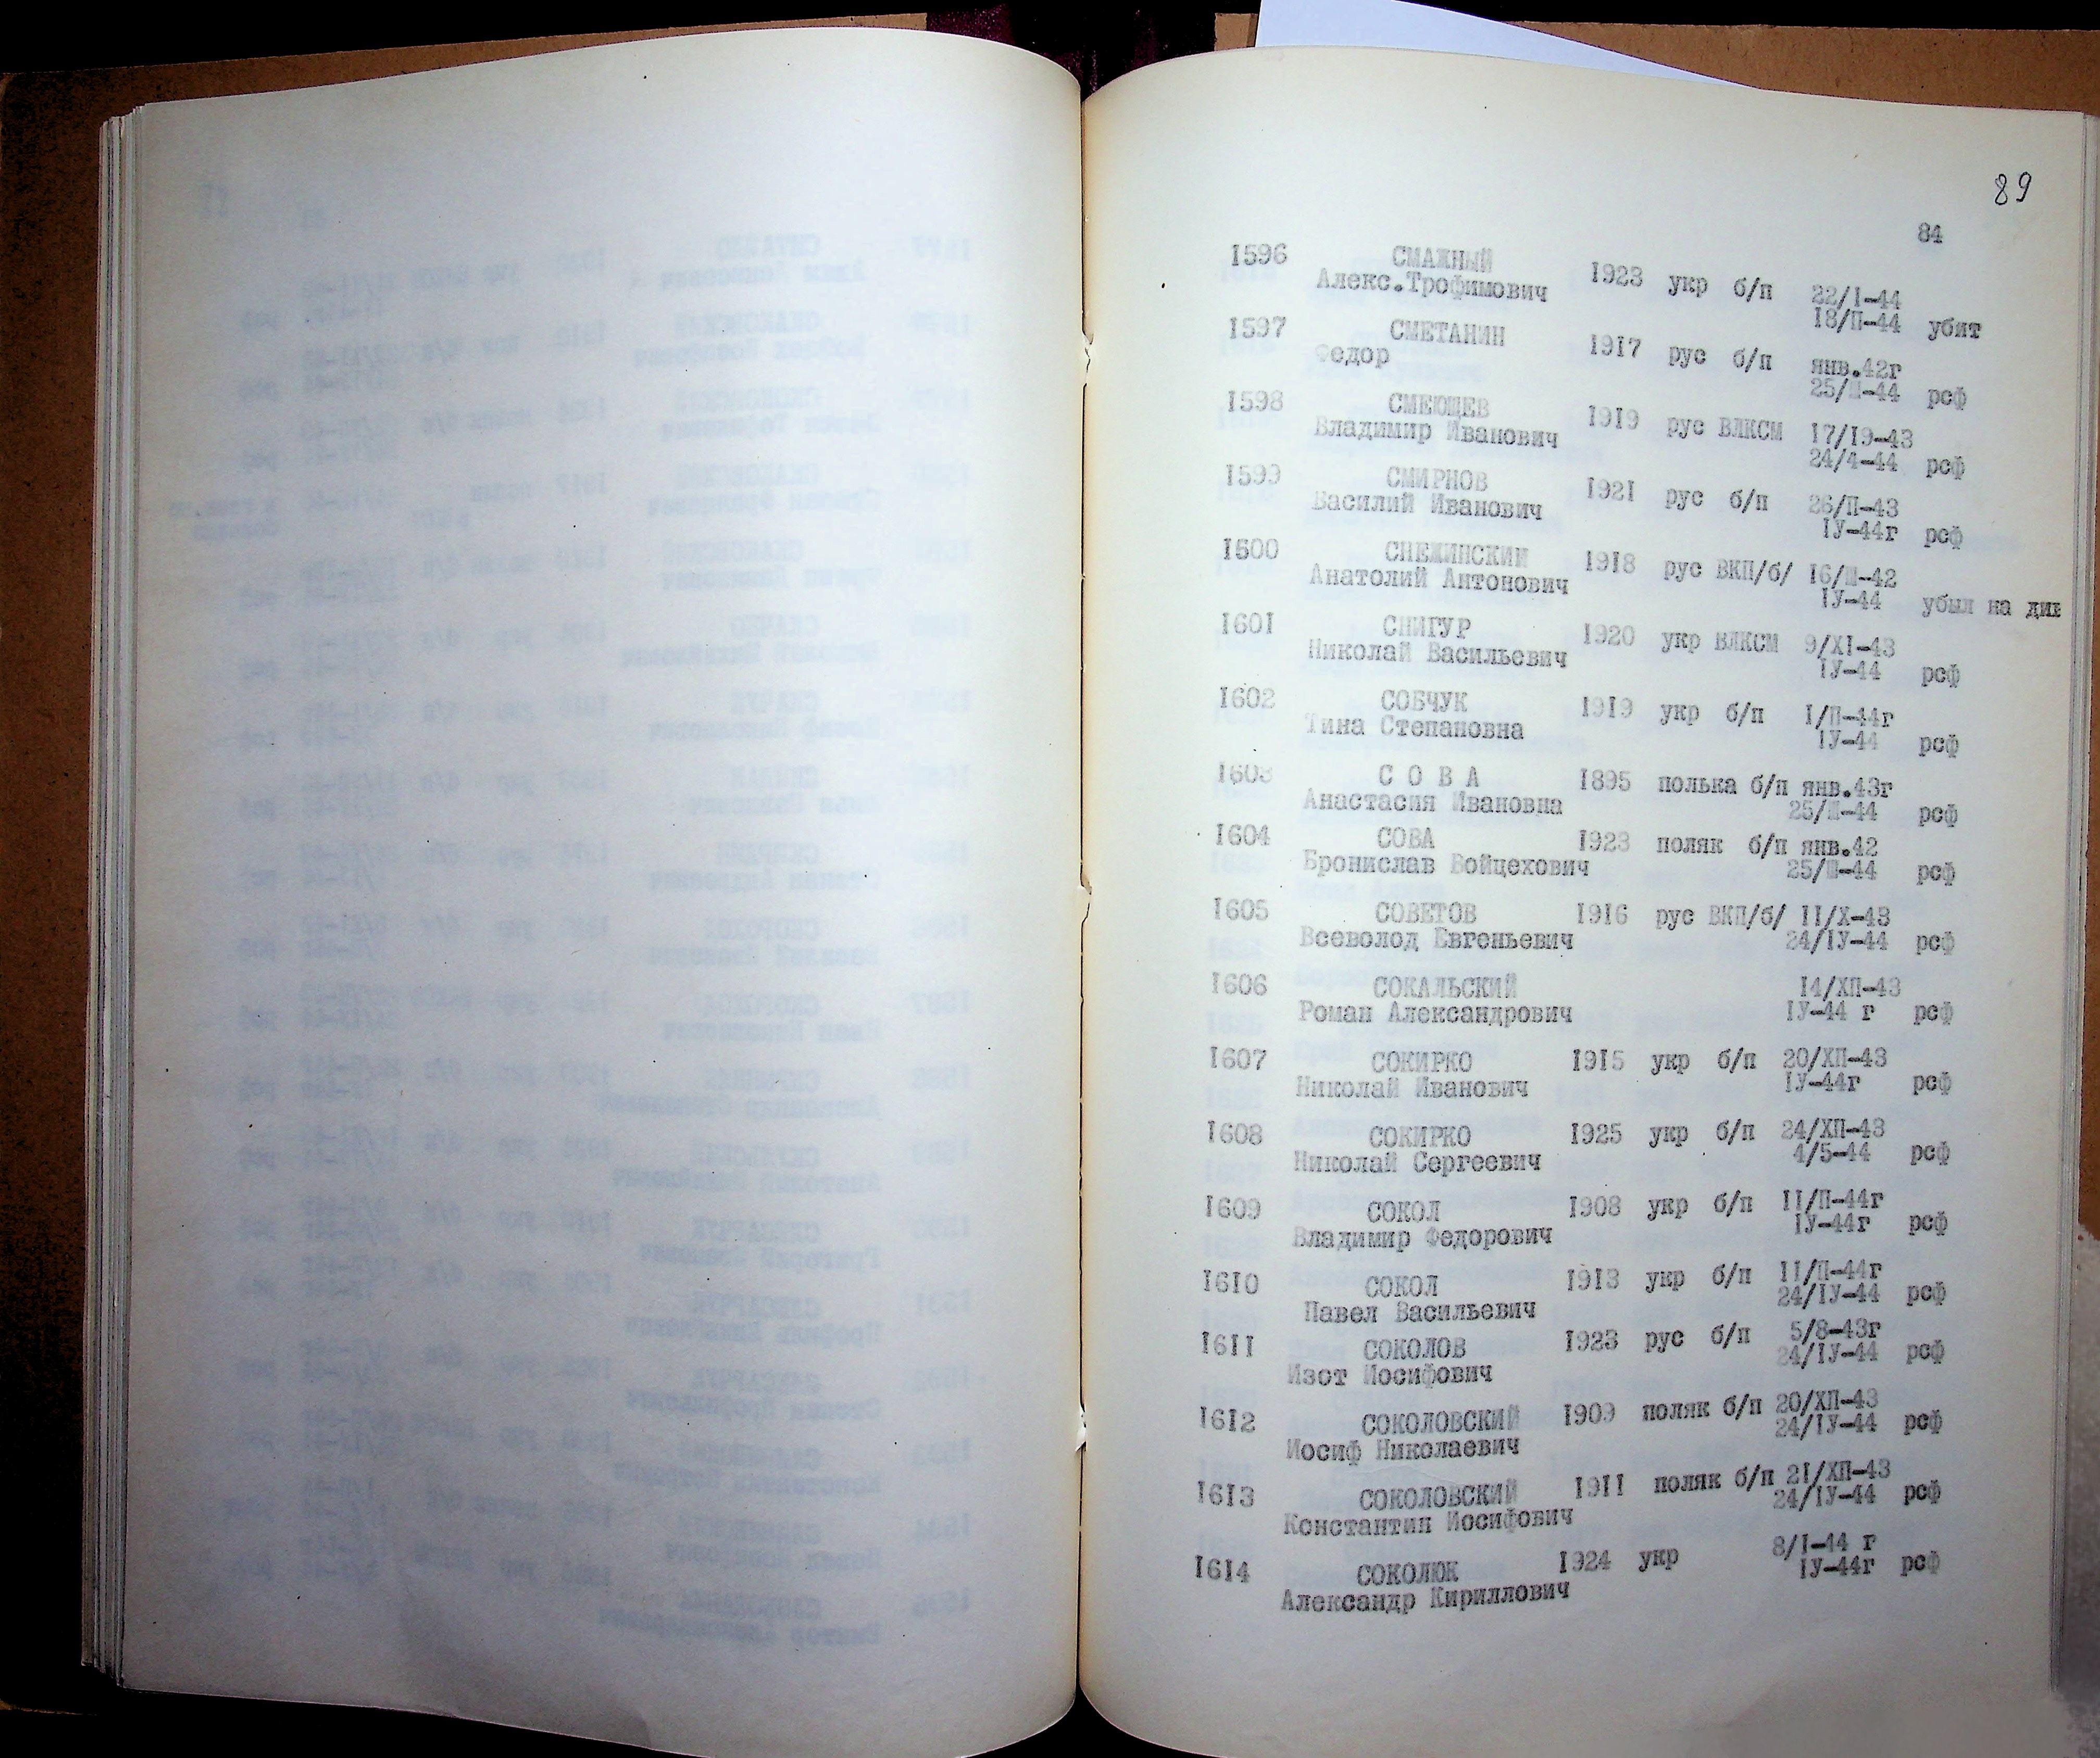 89
84
1596 СМАЖНЫЙ 1923 укр б/п 22/I-44
Алекс.Трофимович 18/П-44 убит
1597 СМЕТАНИН 1917 рус б/п янв.42г
Федор 25/Ш-44 рсф
1598 СМЕЮЩЕВ 1919 рус ВЛКСМ 17/19-43
Владимир Иванович 24/4-44 рсф
1599 СМИРНОВ 1921 рус б/п 26/П-43
Василий Иванович IУ-44г рсф
1600 СНЕЖИНСКИЙ 1918 рус ВКП/б/ 16/Ш-42
Анатолий Антонович IУ-44 убыл на див
1601 СНИГУР 1920 укр ВЛКСМ 9/ХI-43
Николай Васильевич IУ-44 рсф
1602 СОБЧУК 1919 укр б/п I/П-44г
Тина Степановна IУ-44 рсф
1603 С О В А 1895 полька б/п янв.43г
Анастасия Ивановна 25/Ш-44 рсф
1604 СОВА 1923 поляк б/п янв.42
Бронислав Войцехович 25/Ш-44 рсф
1605 СОВЕТОВ 1916 рус ВКП/б/ II/Х-43
Всеволод Евгеньевич 24/IУ-44 рсф
1606 СОКАЛЬСКИЙ 14/ХП-43
Роман Александрович IУ-44 г рсф
1607 СОКИРКО 1915 укр б/п 20/ХП-43
Николай Иванович IУ-44г рсф
1608 СОКИРКО 1925 укр б/п 24/ХП-43
Николай Сергеевич 4/5-44 рсф
1609 СОКОЛ 1908 укр б/п II/П-44г
Владимир Федорович IУ-44г рсф
1610 СОКОЛ 1913 укр б/п II/П-44г
Павел Васильевич 24/IУ-44 рсф
1611 СОКОЛОВ 1923 рус б/п 5/8-43г
Изот Иосифович 24/IУ-44 рсф
1612 СОКОЛОВСКИЙ 1909 поляк б/п 20/ХП-43
Иосиф Николаевич 24/IУ-44 рсф
1613 СОКОЛОВСКИЙ 1911 поляк б/п 21/ХП-43
Константин Иосифович 24/IУ-44 рсф
1614 СОКОЛЮК 1924 укр 8/I-44 г
Александр Кириллович IУ-44г рсф